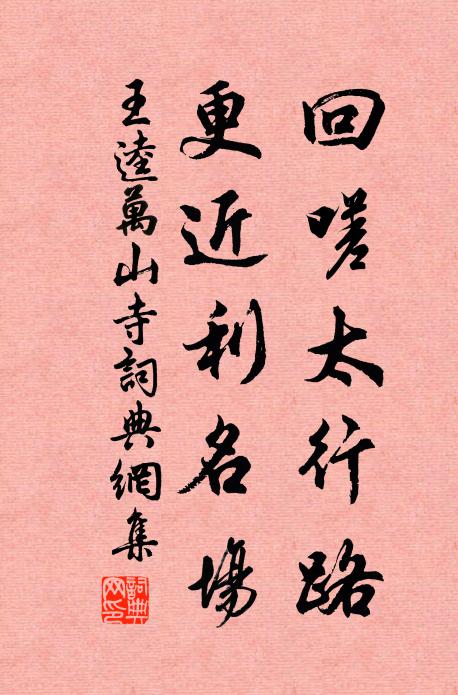 回嗟太行路
更近利名場
王逵萬山寺詞典網集
詞典
網印